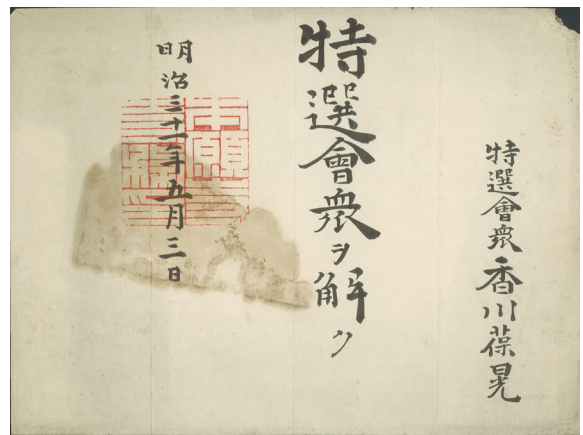 特選會衆 香川葆晃
特選會衆ヲ解ク
明治三十一年五月三日